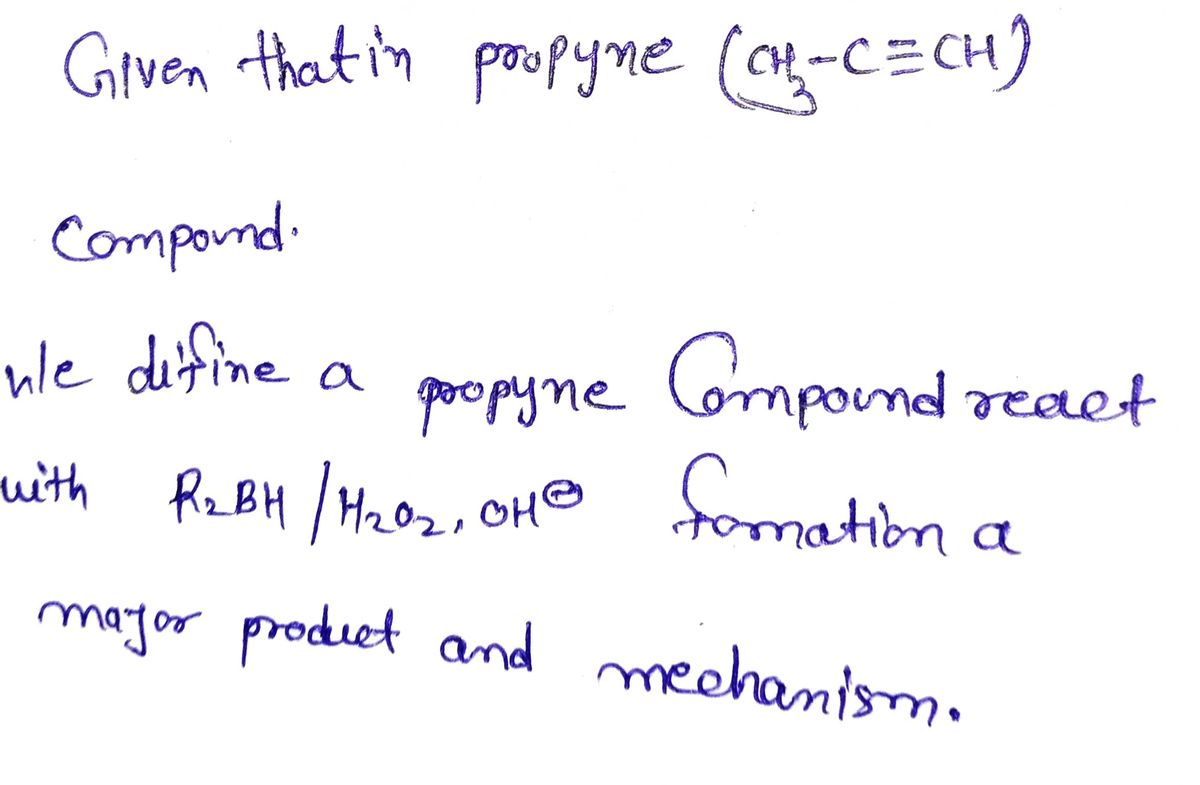 Given that in propyne (CH₃-C≡CH)
Compound.
we difine a propyne Compound react
with R₂BH / H₂O₂, OH⊖ formation a
major product and mechanism.